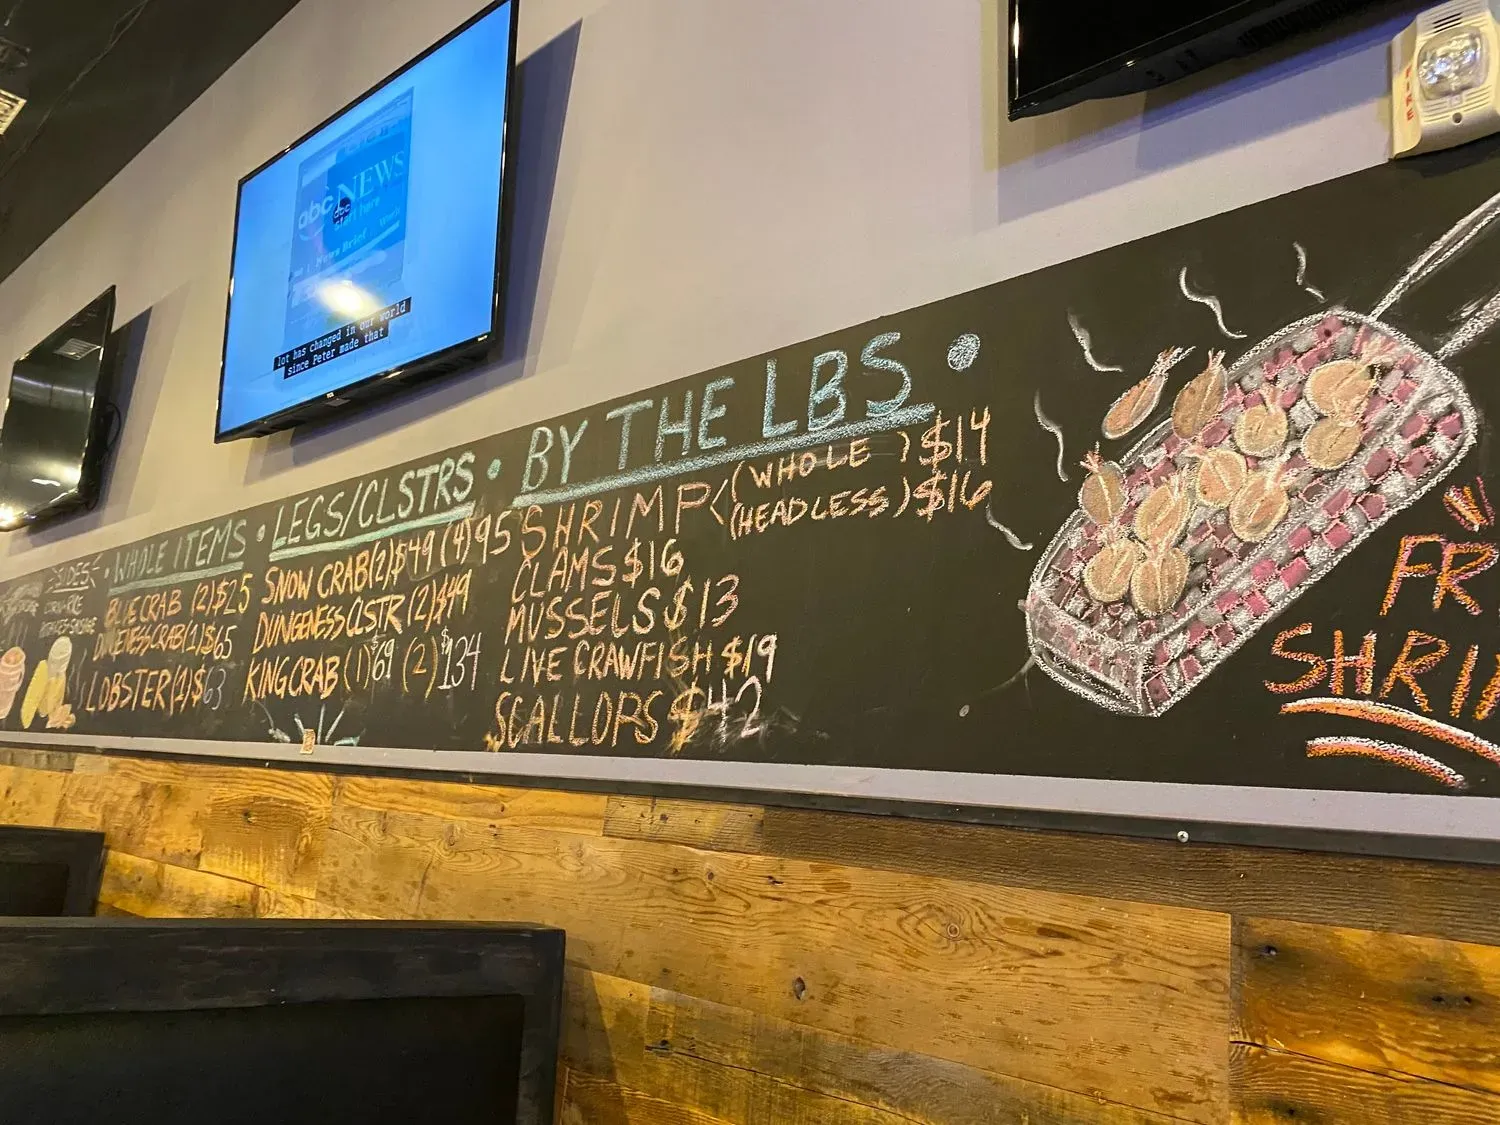 abc NEWS
abc
start here
News Brief
lot has changed in our world
since Peter made that
FIRE
SIDES
CORN · RICE
POTATOES · SAUSAGE
· WHOLE ITEMS ·
BLUE CRAB (2) $25
DUNGENESS CRAB (1) $65
LOBSTER (1) $63
LEGS/CLSTRS ·
SNOW CRAB (2) $49 (4) 95
DUNGENESS CLSTR (2) $49
KING CRAB (1) $69 (2) $134
BY THE LBS ·
SHRIMP < (WHOLE) $14
(HEADLESS) $16
CLAMS $16
MUSSELS $13
LIVE CRAWFISH $19
SCALLOPS $42
FR
SHRI